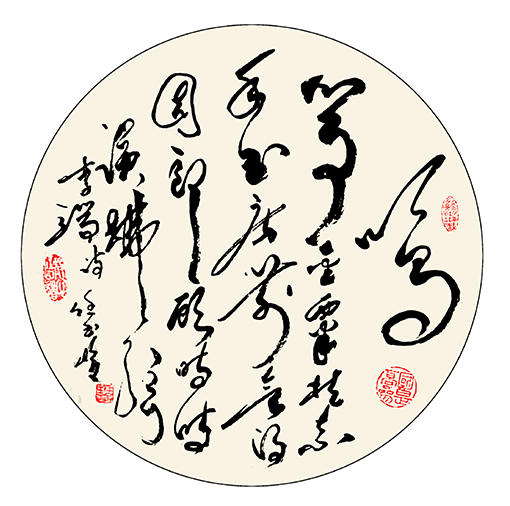 鸣
筝金粟柱素
手玉房前欲得
周郎顾時時
误拂弦
李端诗